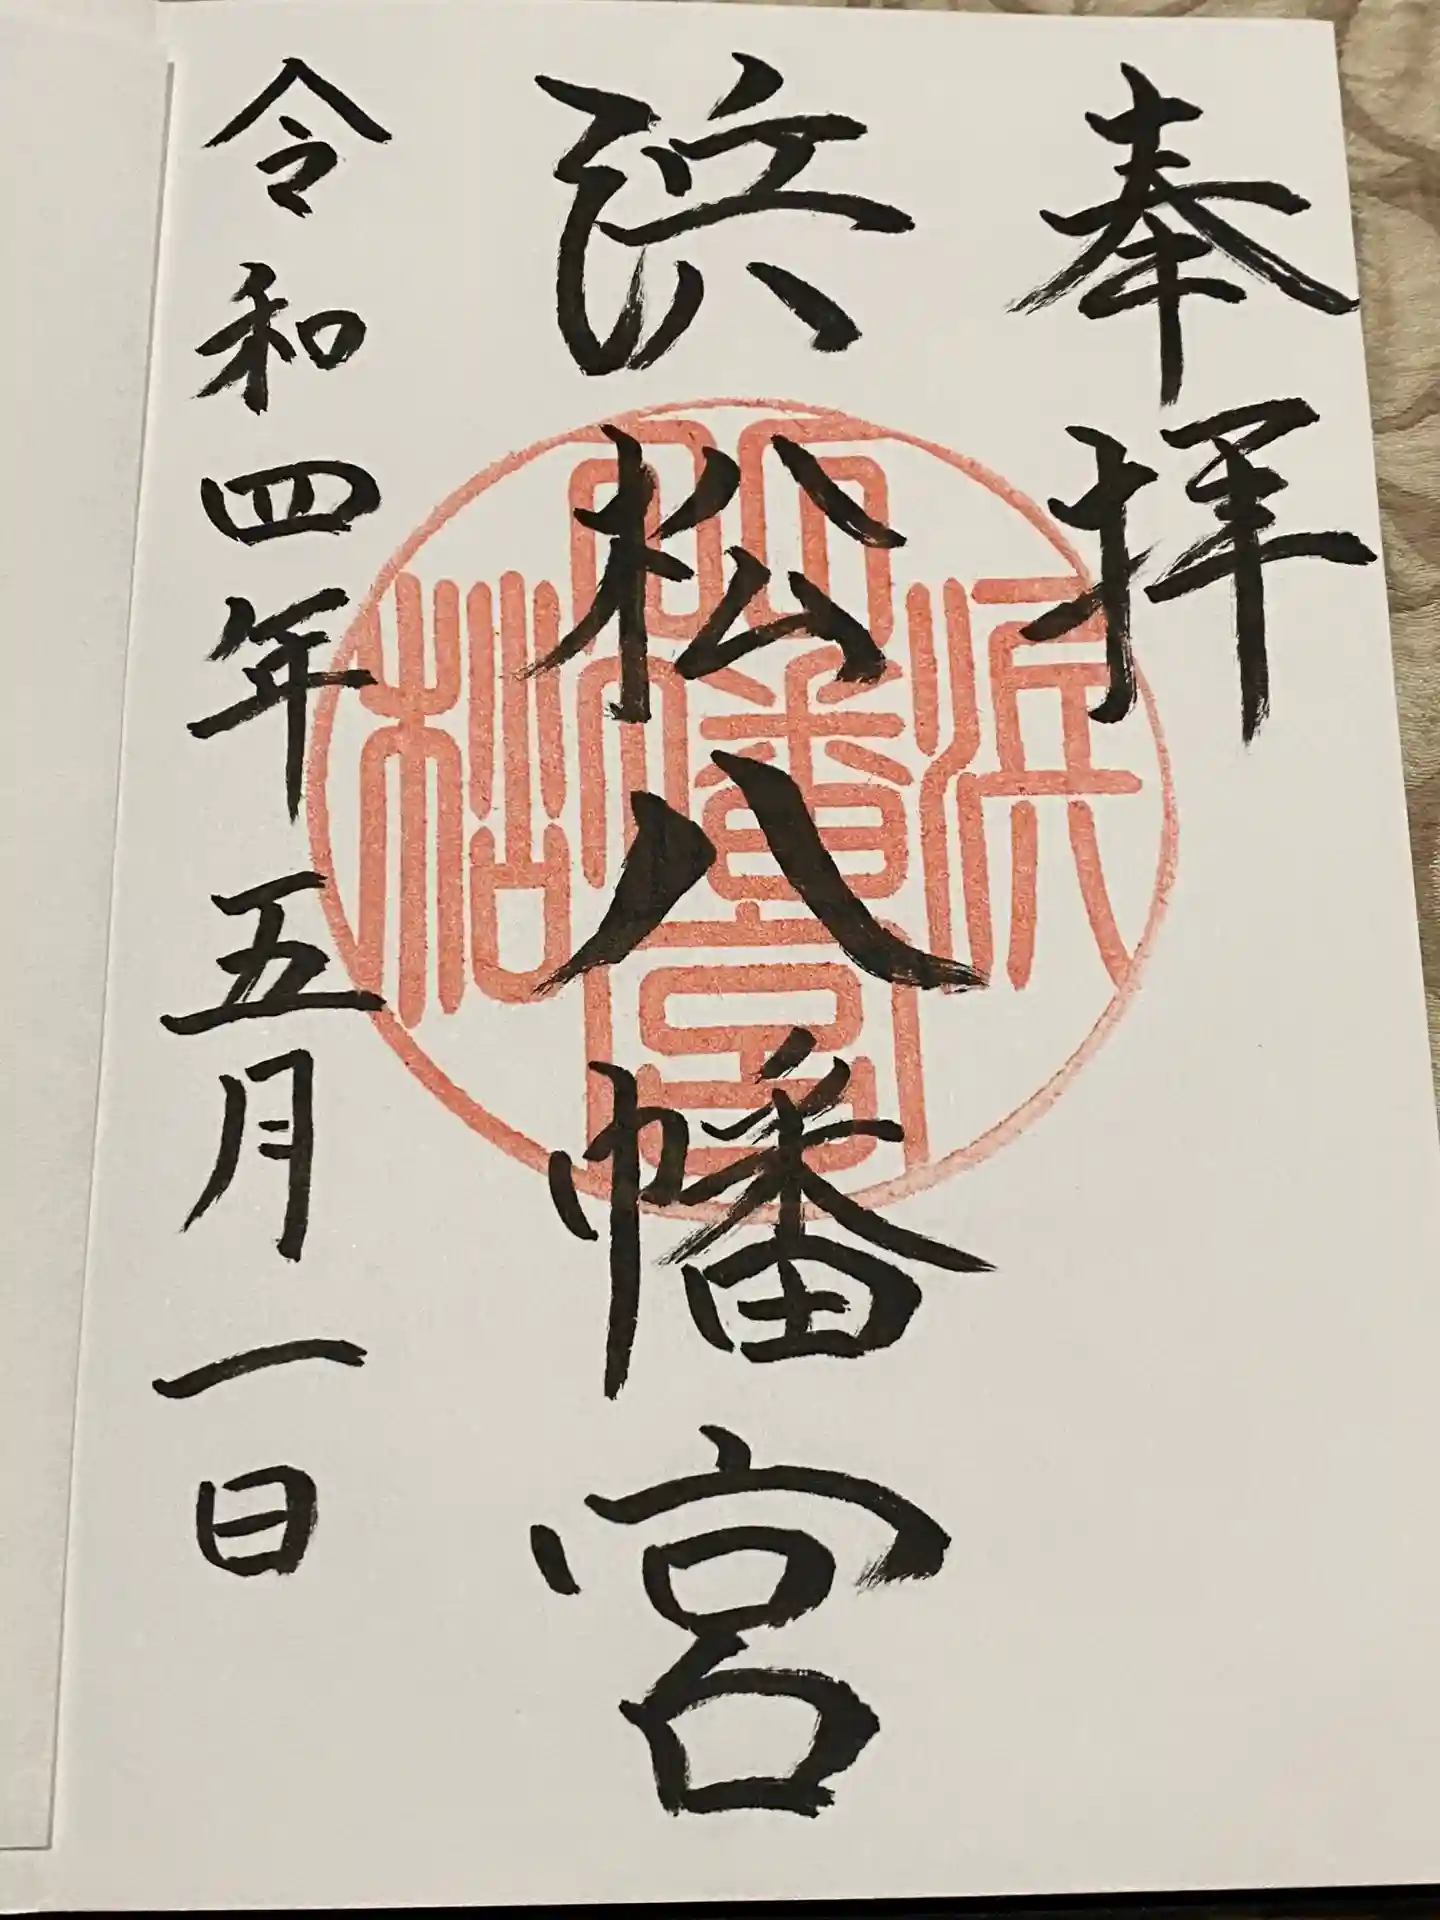 奉拝
浜松八幡宮
令和四年五月一日
浜松八幡宮